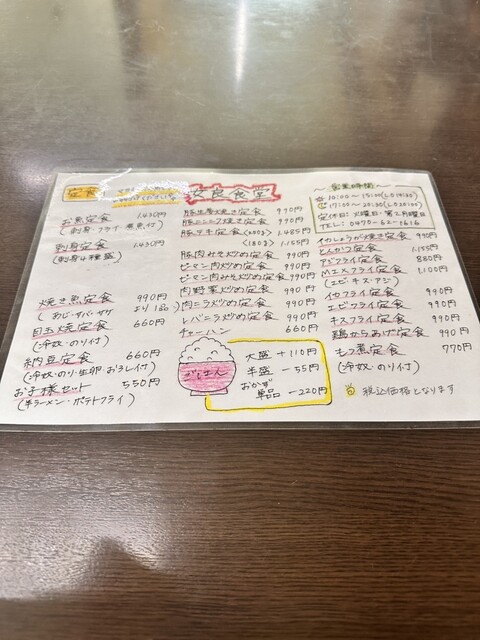 定食
安良食堂
お魚定食 1,430円
(刺身・フライ・煮魚付)
刺身定食 1,430円
(刺身4種盛)
焼き魚定食 990円
あじ・サバ・サケ より1品
目玉焼定食 660円
(冷奴・のり付)
納豆定食 660円
(冷奴・のり・生卵 おろし付)
お子様セット 550円
(半ラーメン・ポテトフライ)
豚生姜焼き定食 990円
豚ニンニク焼き定食 990円
豚テキ定食 <240g> 1,485円
<180g> 1,155円
豚肉みそ炒め定食 990円
ピーマン肉炒め定食 990円
ピーマン肉みそ炒め定食 990円
肉野菜炒め定食 990円
肉ニラ炒め定食 990円
レバニラ炒め定食 990円
チャーハン 660円
ごはん
大盛 +110円
半盛 -55円
おかず
単品 -220円
〜営業時間〜
10:00〜15:00
17:00〜20:30 (L.O 20:00)
定休日: 火曜日・第2月曜日
TEL: 0470-62-1616
イカしょうが焼き定食 990円
とんかつ定食 1,155円
アジフライ定食 880円
MIXフライ定食 1,100円
(エビ・キス・アジ)
イカフライ定食 990円
エビフライ定食 990円
キスフライ定食 990円
鶏からあげ定食 990円
もつ煮定食 770円
(冷奴・のり付)
税込価格となります